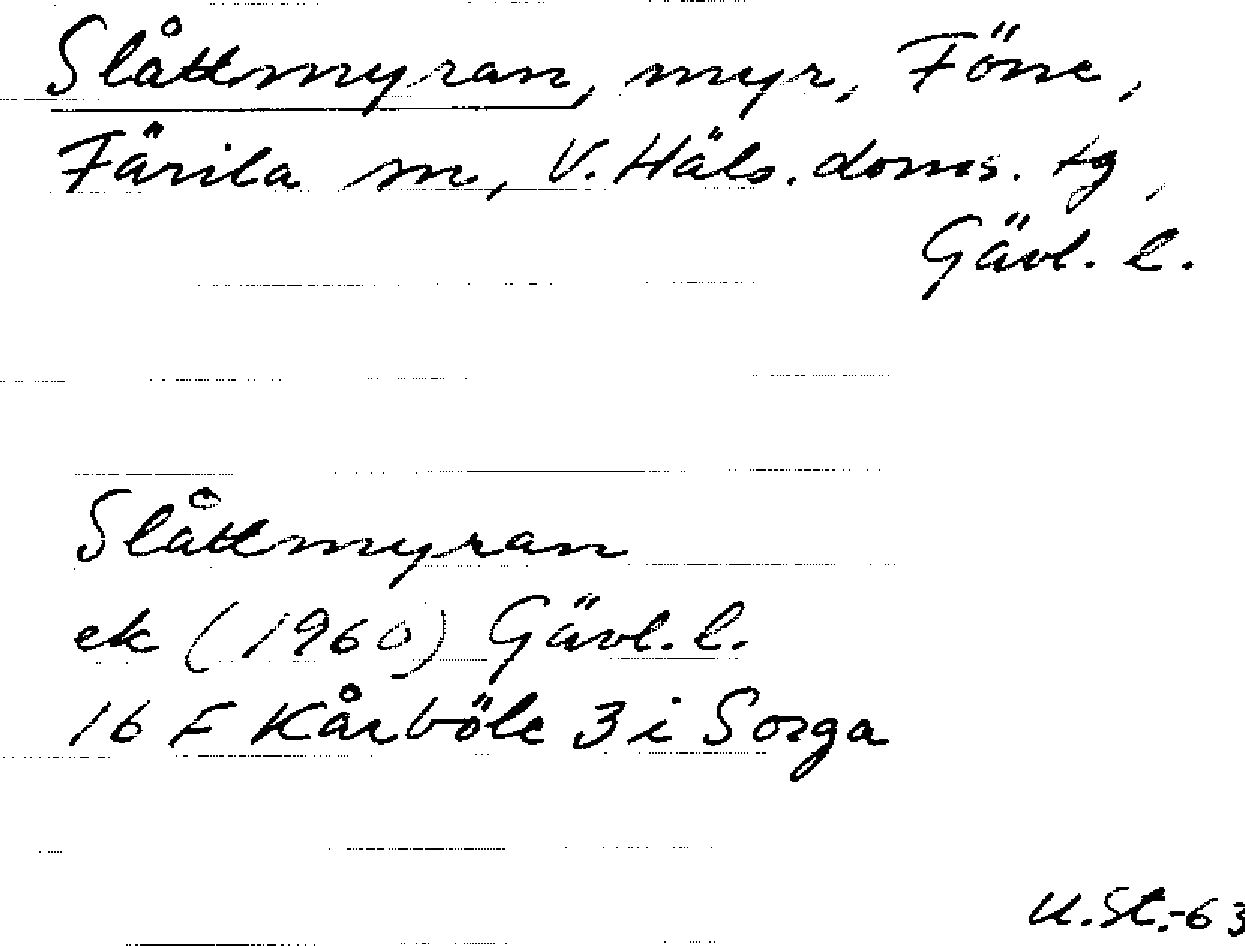 Slåttmyran, myr, Föne,
Färila sn, V. Häls. doms. tg,
Gävl. l.
Slåttmyran
ek (1960) Gävl. l.
16 F Kårböle 3 i Sorga
U.St.-63